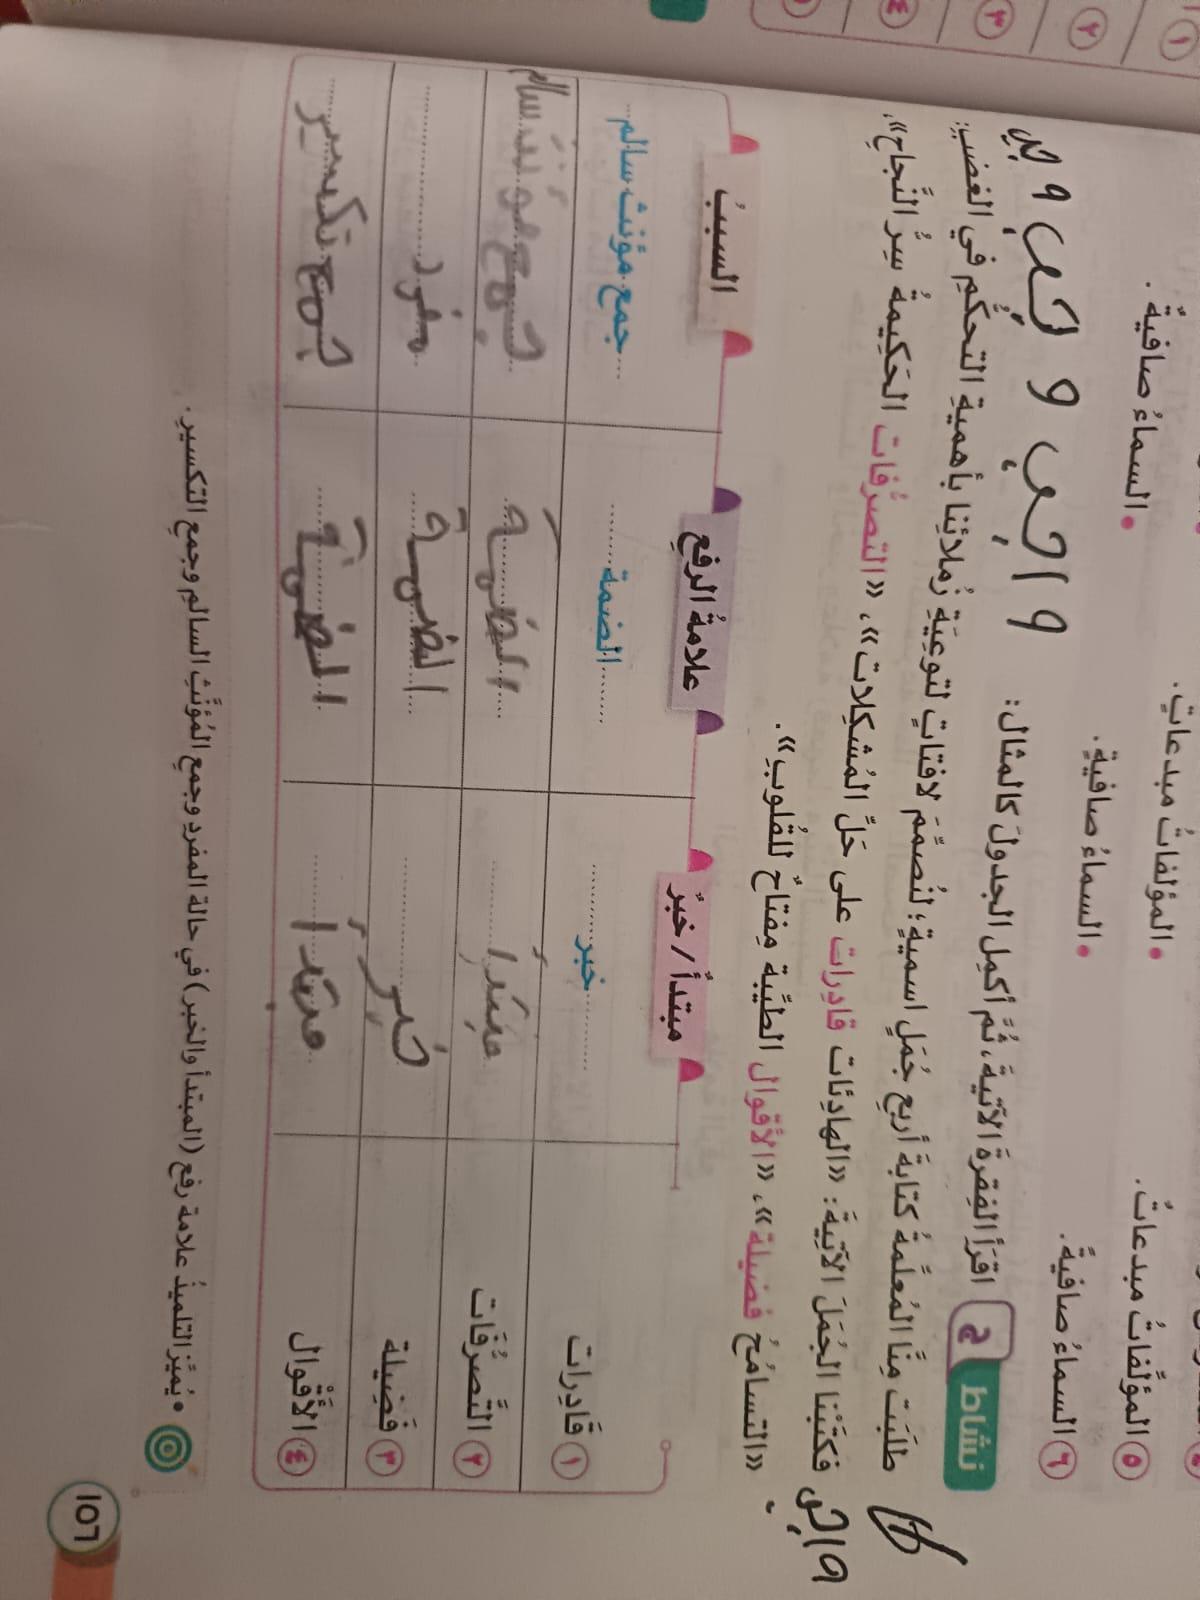 ١
٢
٣
٤
• المؤلفاتُ مبدعاتٍ.
٥ المؤلَّفاتُ مبدعاتٌ.
• السماءُ صافيةٌ.
• السماءُ صافيةٍ.
٦ السماءُ صافيةً.
واجب واجب واجب
نشاط ح اقرَأِ الفِقرةَ الآتيةَ، ثُمَّ أكمِلِ الجدولَ كالمثال:
طلَبَت مِنَّا المُعلِّمةُ كتابةَ أربعِ جُمَلٍ اسميةٍ؛ لنُصمِّمَ لافتاتٍ لتوعِيَةِ زُملائِنا بأهميةِ التحكُّمِ في الغضبِ؛
فكتَبْنا الجُمَلَ الآتِيةَ: «الهادِئات قادِرات على حَلِّ المُشكِلات»، «التصرُّفات الحَكِيمةُ سِرُّ النَّجاحِ»،
«التسامُحُ فضيلة»، «الأقوال الطيِّبة مِفتاحٌ للقُلوبِ».
واجب
مبتدأٌ / خبرٌ علامةُ الرفعِ السببُ
١ قَادِرات خبر الضمة جمع مؤنث سالم
٢ التَّصرُّفَات مبتدأ الضمة جمع مؤنث سالم
٣ فَضِيلة خبر الضمة مفرد
٤ الأَقْوال مبتدأ الضمة جمع تكسير
• يُميِّز التلميذُ علامة رفع (المبتدأ والخبر) في حالة المفردِ وجمعِ المُؤنَّثِ السالمِ وجمعِ التكسيرِ.
١٥٦